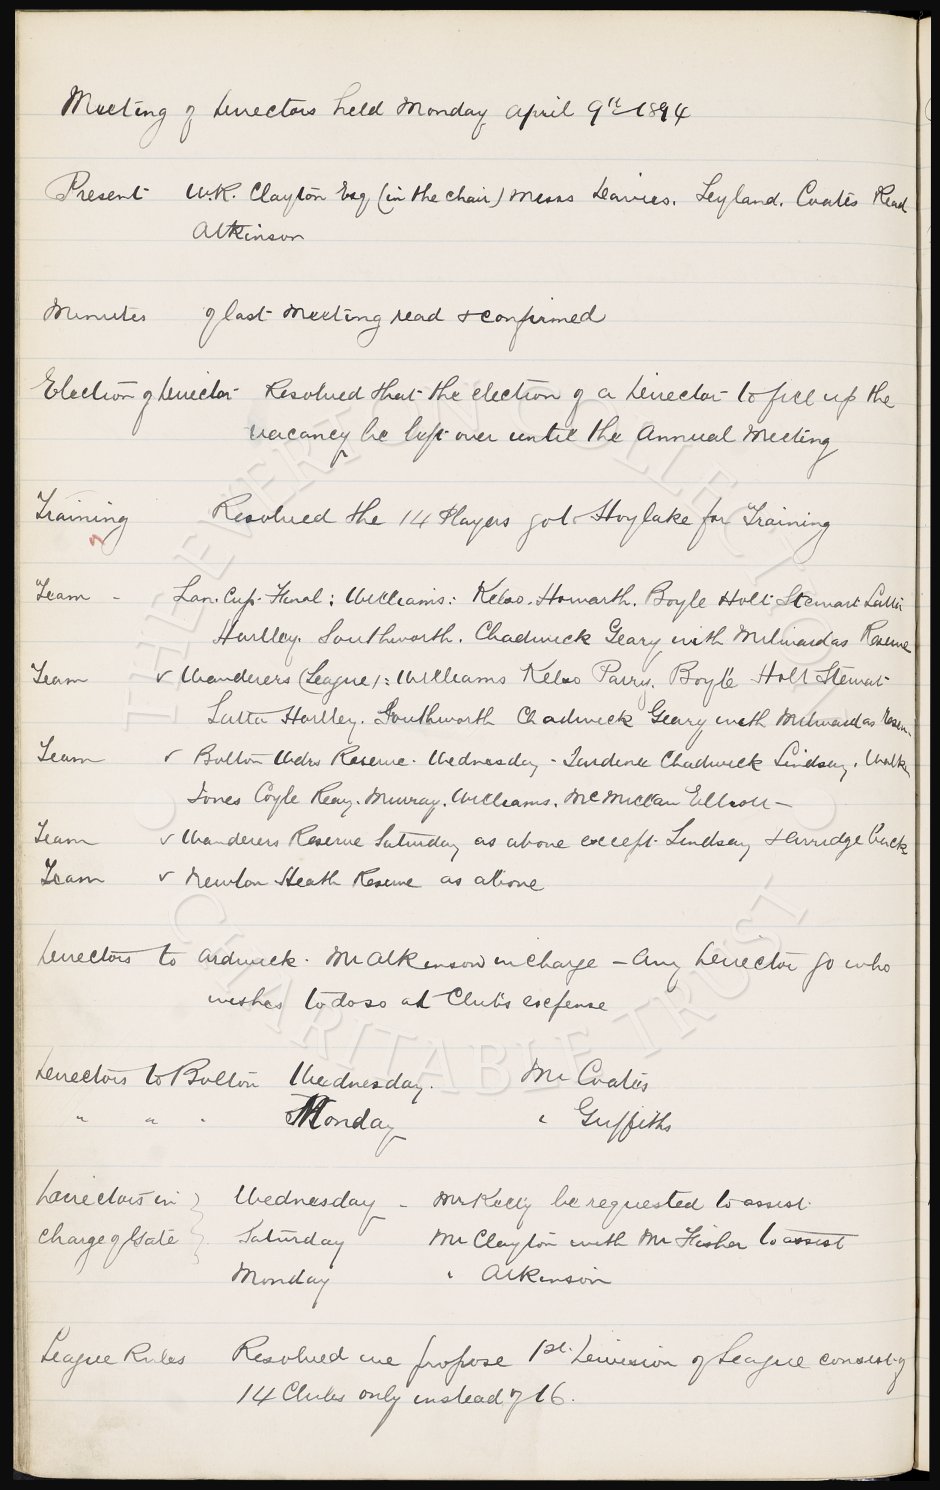 Meeting of Directors held Monday April 9th 1894
Present W.R. Clayton Esq (in the chair) Messs Davies. Leyland. Coates Read
Atkinson
Minutes of last Meeting read & confirmed
Election of Director Resolved that the election of a Director to fill up the
vacancy be left over until the Annual Meeting
Training Resolved the 14 Players go to Hoylake for Training
Team - Lan. Cup. Final: Williams: Kelso. Howarth. Boyle Holt Stewart Latta
Hartley. Southworth. Chadwick Geary with Milward as Reserve
Team v Wanderers (League): Williams Kelso Parry. Boyle Holt Stewart
Latta Hartley. Southworth Chadwick Geary with Milward as Reser.
Team v Bolton Wdrs Reserve. Wednesday - Chadwick Lindsay. Walker
Jones Coyle Reay. Murray. Williams. McMillan Elliott -
Team v Wanderers Reserve Saturday as above except Lindsay & Arridge back
Team v Newton Heath Reserve as above
Directors to Ardwick. Mr Atkinson in charge - Any Director go who
wishes to do so at Club's expense
Directors to Bolton Wednesday. Mr Coates
" " " Monday " Griffiths
Directors in } Wednesday - Mr Kelly be requested to assist
charge of Gate } Saturday Mr Clayton with Mr Fisher to assist
Monday " Atkinson
League Rules Resolved we propose 1st Division of League consist of
14 Clubs only instead of 16.
THE EVERTON COLLECTION
CHARITABLE TRUST